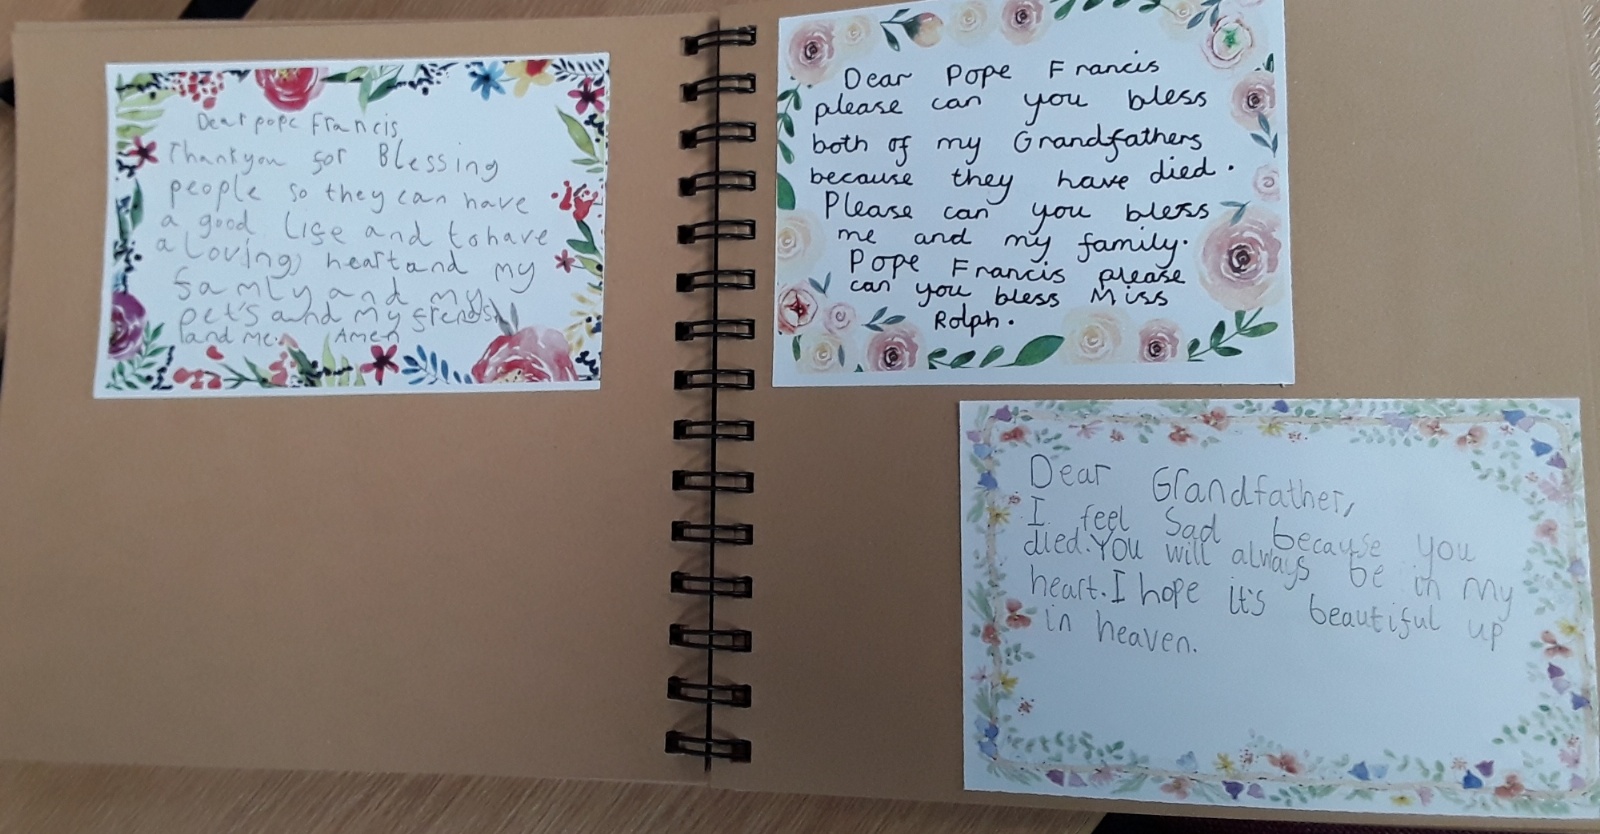 Dear pope Francis
Thankyou for Blessing
people so they can have
a good lise and tohave
a loving heart and my
samly and my
pet's and my srends
and me. Amen
Dear Pope Francis
please can you bless
both of my Grandfathers
because they have died.
Please can you bless
me and my family.
Pope Francis please
can you bless Miss
Rolph.
Dear Grandfather,
I feel Sad because you
died. You will always be in my
heart. I hope it's beautiful up
in heaven.